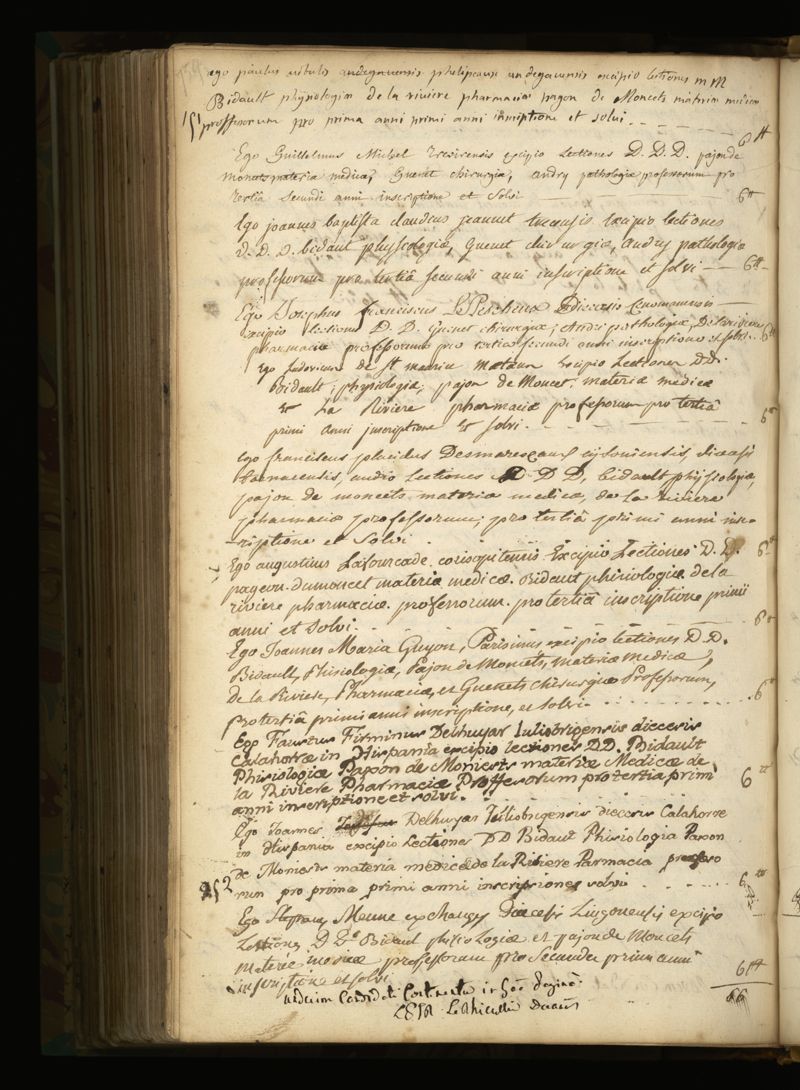 ego paulus vitalis andegavensis phelipeaux andegavensis excipio lectiones
Bidault physiologiæ de la riviere pharmaciæ pajon de Moncets materiæ medicæ
151 professorum pro prima anni primi anni inscriptione et solvi
6 ₶
Ego Guillelmus Michel excipio Lectiones D. D. D. pajon de
moncets materia medicæ, Guenet chirurgiæ, andry pathologiæ professorum pro
tertiâ secundi anni inscriptione et solvi 6 ₶
Ego joannes baptista claudius jeannet excipio lectiones
d. D. D. bidaut physiologiæ, Guenet chirurgiæ, andry pathologiæ
professorum pro tertiâ secundi anni inscriptione et solvi 6 ₶
Ego Josephus franciscus diœcesis Cenomanensis
Excipio lectiones D. D. Guenet chirurgiæ, Andri pathologiæ, De la riviere
pharmaciæ professorum pro tertia secundi anni inscriptione et solvi 6 ₶
Ego Ludovicus de st Excipio Lectiones D.D.
Bidault, physiologiæ, pajon de Moncet materiæ medicæ
& La Riviere pharmaciæ professorum pro tertiâ
primi anni inscriptione & solvi 6 ₶
ego franciscus placidus Desmarescaux diœcesis
audio Lectiones D D D, bidault physiologiæ,
pajon de moncets materia medicæ, de la riviere
pharmaciæ professorum, pro tertiâ primi anni ins-
criptione et Solvi 6 ₶
Ego augustinus Lafourcade corisopitensis Excipio Lectiones D. D.
pageon dumoncet materiæ medicæ. Bidaut phisiologiæ de la
riviere pharmaciæ. professorum. pro tertiâ inscriptione primi
anni et solvi 6 ₶
Ego Joannes Maria Guyon, Parisinus excipio lectiones D D.
Bidault, Phisiologiæ, Pajon de Moncets, materiæ medicæ,
de la Riviere, Pharmaciæ, et Guenets chirurgiæ Professorum,
pro tertiâ primi anni inscriptione, et solvi 6 ₶
Ego Faustus Firminus Delhuyar Iuliobrigensis diecesis
Calahorræ in Hispania excipio lectiones DD. Bidault
Phisiologiæ Paxon de Moncsts materiæ Medicæ de
la Riviere Pharmaciæ Proffesorum pro tertia primi
anni inscriptione et solvi. 6 ₶
Ego Joannes Delhuyar Juliobrigensis diecesis Calahorre
in Hispania excipio Lectiones DD Bidaut Phisiologia Paxon
de Moncsts materia medicæ de la Riviere Farmacia professo
152 rum pro prima primi anni inscripsiones solvi 6 ₶
Ego Meune ex Diœcesi Lingonensis excipio
Lectiones D D. Bidaut phisiologiæ et pajon de Moncets
materie professorum pro secunda primi anni
inscriptione et solvi 6 ₶
undecim Candidati Continentur in hâc paginâ 66